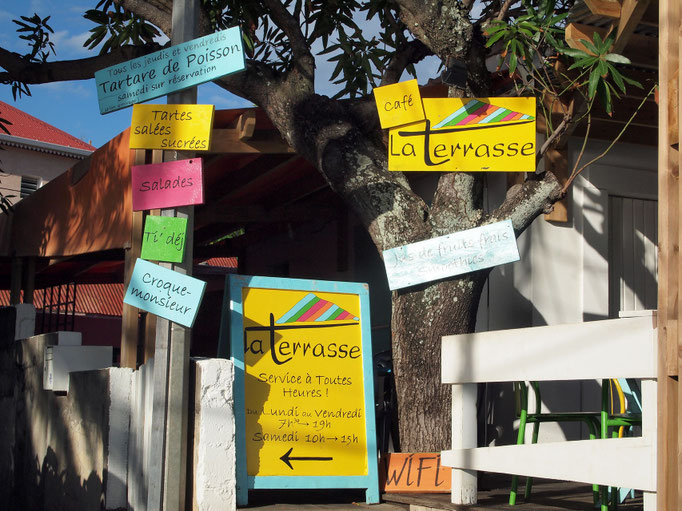 Tous les jeudis et vendredis
Tartare de Poisson
samedi sur réservation
Tartes
salées
sucrées
Salades
Ti' déj
Croque-
monsieur
Café
La Terrasse
Jus de fruits frais
smoothies
La Terrasse
Service à Toutes
Heures !
Du Lundi au Vendredi
7h → 19h
Samedi 10h → 15h
←
WIFI